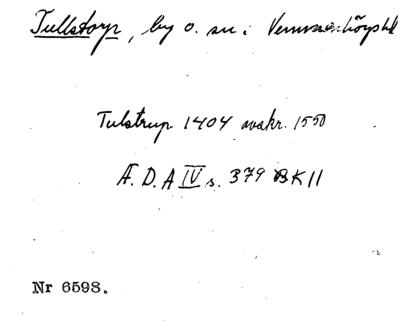 Tullstorp, by o. sn i Vemmenhögs hd
Tulstrup 1404 avskr. 1550
Æ. D. A IV s. 379 BK II
Nr 6598.